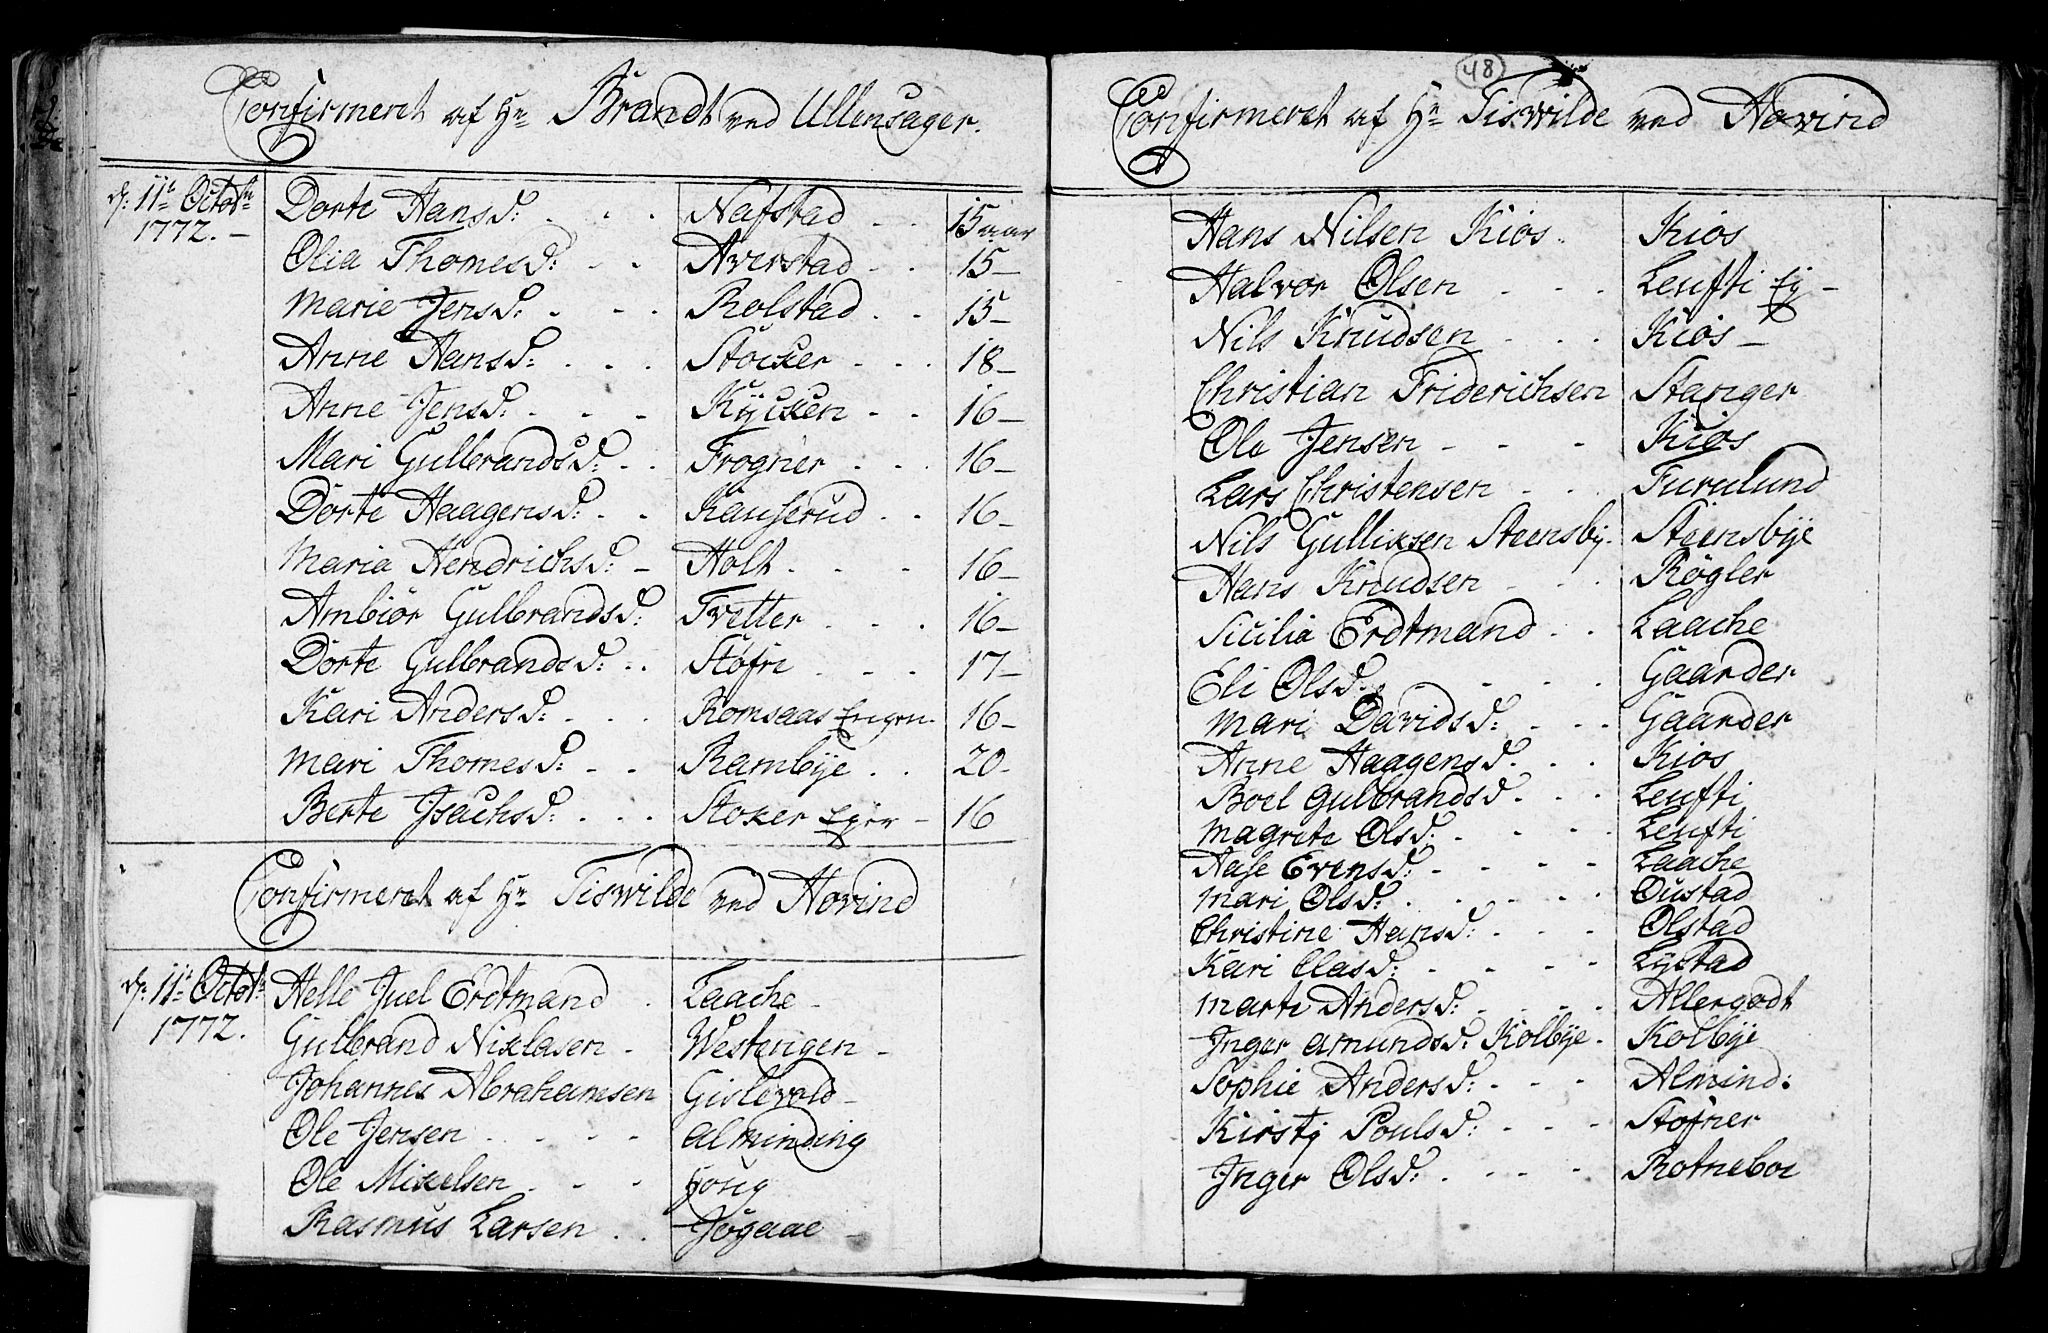 Confirmeret af Hr Brandt ved Ullensager.
d: 11te Octobr 1772. – Dorte Hansd: Nafstad 15 aar
Olia Thomesd: Averstad 15 –
Marie Jensd: Rolstad 15 –
Anne Hansd: Stocker 18 –
Anne Jensd: Kycken 16 –
Mari Gulbrandsd: Frogner 16 –
Dorte Haagensd: Kauserud 16 –
Maria Hendrichsd: – Holt 16 –
Ambiør Gulbrandsd: Tvetter 16 –
Dorte Gulbrandsd: Støfre 17 –
Kari Andersd: Romsaas Engen 16 –
Mari Thomesd: Rambÿe 20 –
Berte Jsachsd: Stoker Eyer – 16
Confirmeret af Hr Tiswilde ved Hovind
d: 11te Octobr 1772. Helle Juel Erdtmand Laache –
Gulbrand Nixlasen Westengen –
Johannes Abrahamsen Gislevold –
Ole Jensen Alminding
Ole Mikelsen Houg
Rasmus Larsen Jøgaae –
48
Confirmeret af Hr Tiswilde ved Hovind
Hans Nilsen Kiøs Kiøs
Halvor Olsen Leufti Ey –
Nils Knudsen Kiøs –
Christian Friderichsen Stanger
Ole Jensen Kiøs
Lars Christensen Furulund
Nils Gullixsen Steensby Steensbÿe
Hans Knudsen Røgler
Sicilia Erdtmand Laache
Eli Olsd: Gaarder
Mari Davidsd: Gaarder
Anne Haagensd: Kiøs
Boel Gulbrandsd Leufti
Magrete Olsd: Leufti
Aase Evensd: Laache
Mari Olsd: Oustad
Christine Hansd: Olstad
Kari Olasd: Lystad
Marte Andersd: Allergodt
Jnger Amundsd: Kolbÿe Kolbÿe
Sophie Andersd: Almind:
Kirsty Poulsd: Stofner
Jnger Olsd: Rotneboe